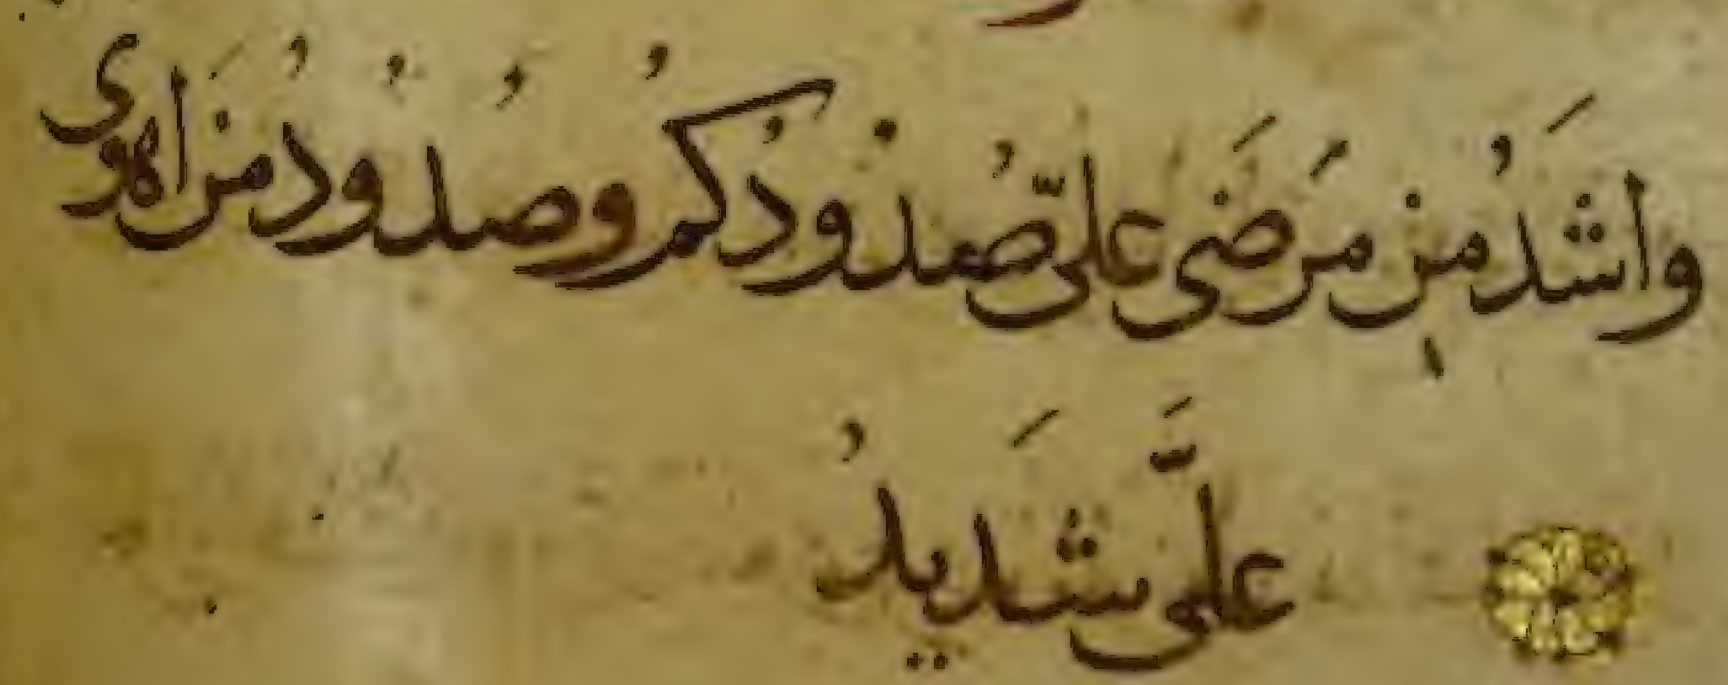 واشَدُ مِن مَرَضى عَلىَّ صُدُودُكمُ وصُدُودُ مَن اهوى
عَلىَّ شَدِيدُ